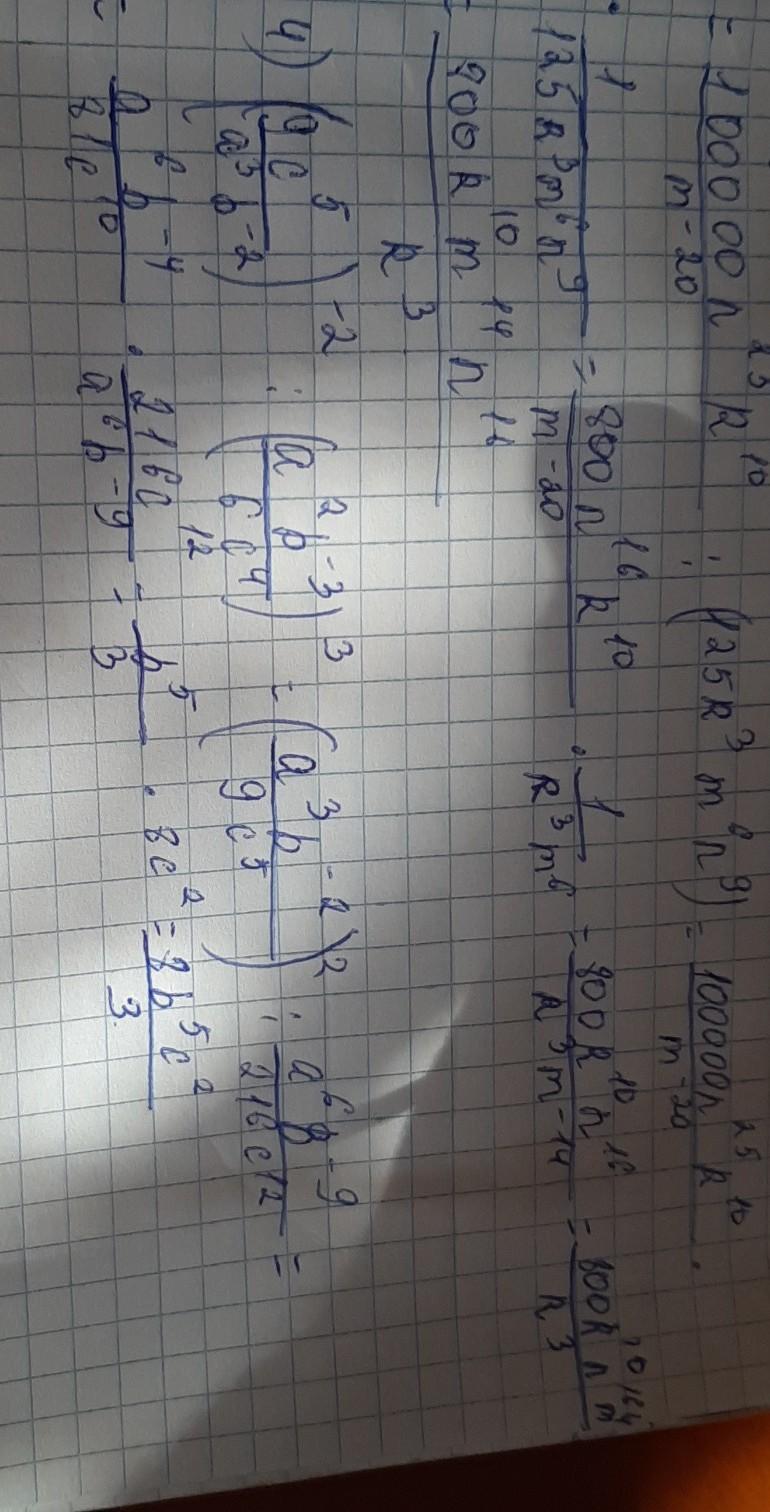 = 1000 00 n^25 k^10 / m^-20 : (125 k^3 m^6 n^9) = 100000 n^25 k^10 / m^-20 ·
1 / 125 k^3 m^6 n^9 = 800 n^16 k^10 / m^-20 · 1 / k^3 m^6 = 800 k^10 n^16 / k^3 m^-14 = 800 k^10 n^16 m^14 / k^3
800 k^10 m^14 n^16 / k^3
4) (9c^5 / a^3 b^-2)^-2 : (a^2 b^-3 / 6c^4)^3 = (a^3 b^-2 / 9c^5)^2 : a^6 b^-9 / 216c^12 =
= a^6 b^-4 / 81c^10 · 216c^12 / a^6 b^-9 = b^5 / 3 · 8c^2 = 8b^5 c^2 / 3